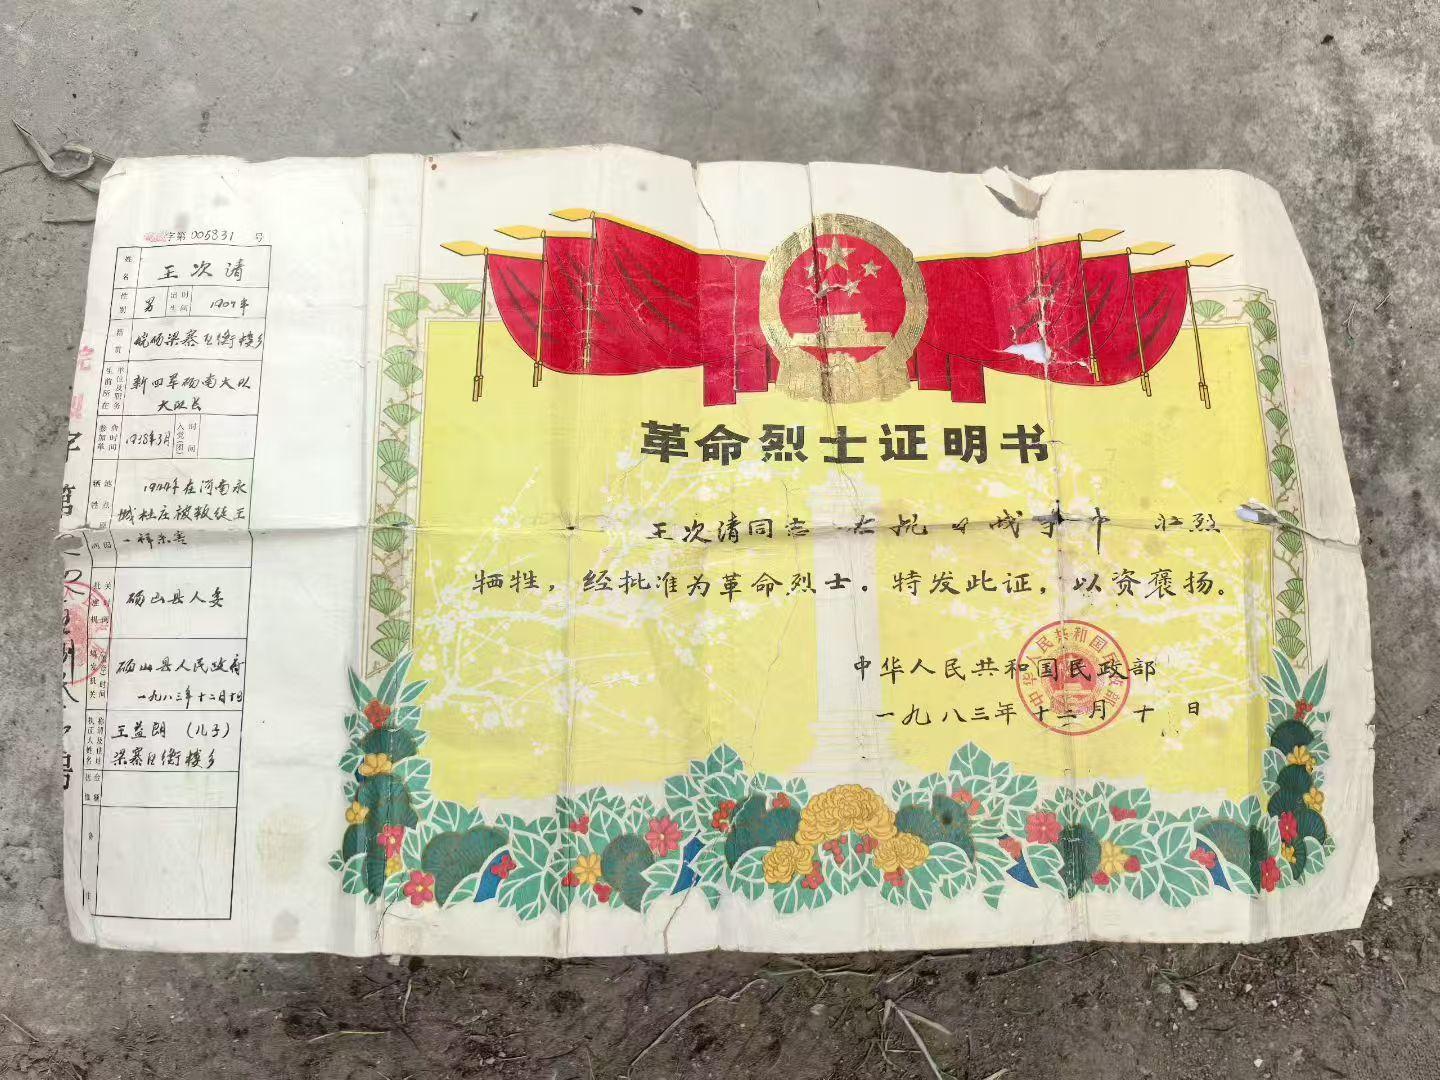 字第005831号
姓名 王次清
性别 男 出生时间 1907年
籍贯 皖砀梁寨区衡楼乡
生前所在单位及职务 新四军砀南大队
大队长
参加革命时间 1938年3月 入党(团)时间
牺牲 地点 原因 1944年在河南永
城杜庄被叛徒王
一祥杀害
批准机关 时间 砀山县人委
填发机关 时间 砀山县人民政府
一九八三年十二月十日
持证人姓名 称谓及住址 王益朗 (儿子)
梁寨区衡楼乡
备注
革命烈士证明书
王次清同志 在抗日战争中 壮烈
牺牲，经批准为革命烈士。特发此证，以资褒扬。
中华人民共和国民政部
一九八三年十二月十日
中华人民共和国民政部